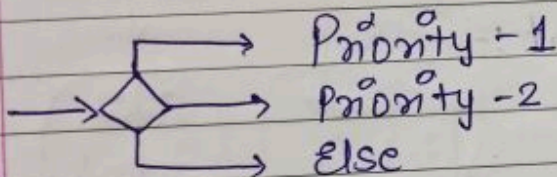 Priority - 1
Priority - 2
Else